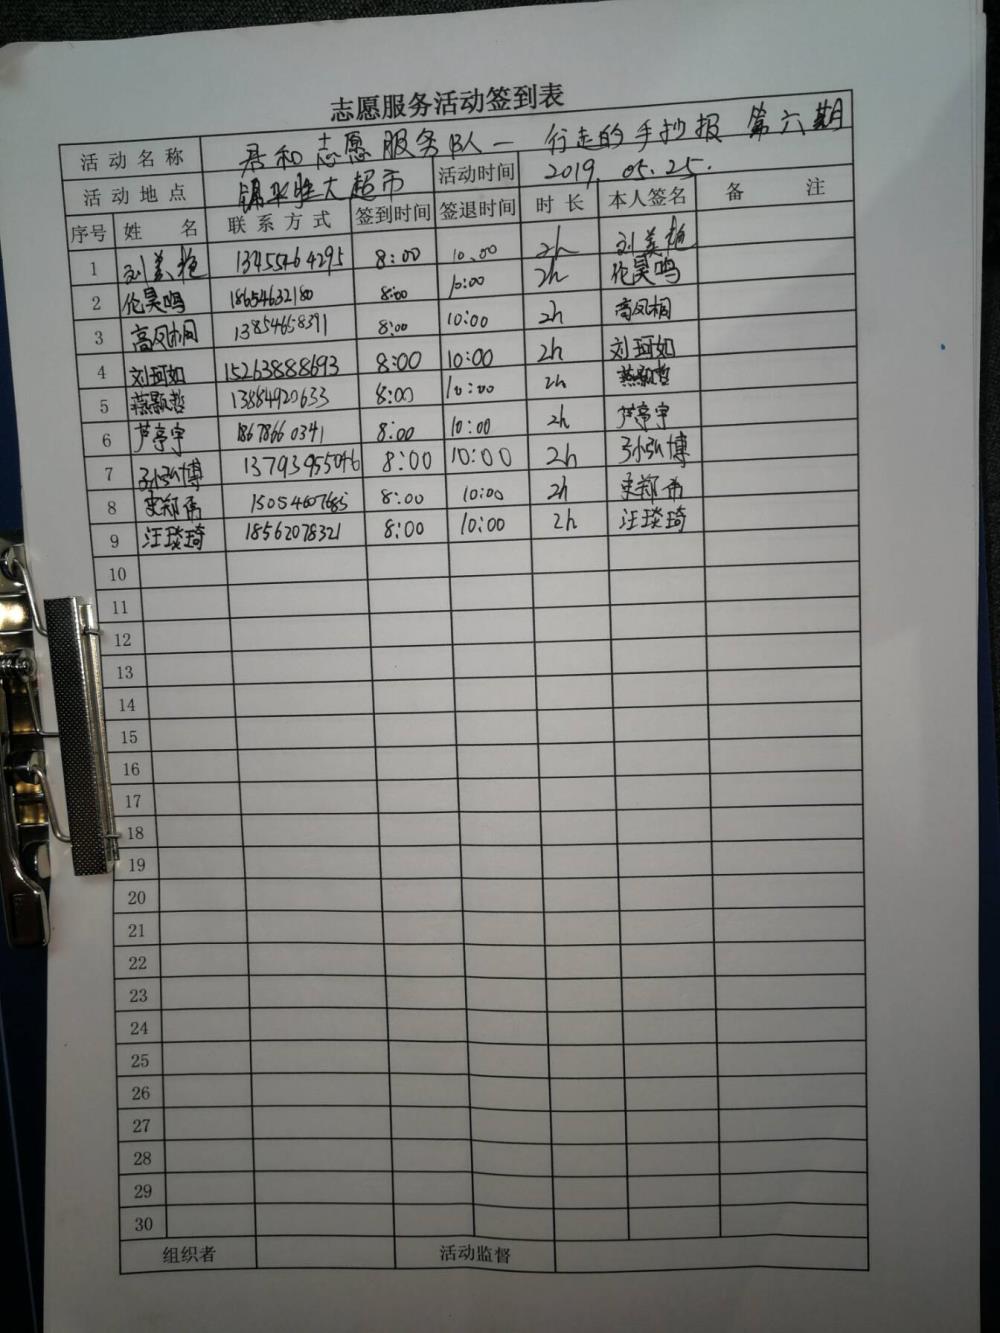 志愿服务活动签到表
活动名称 君和志愿服务队— 行走的手抄报 第六期
活动地点 大超市 活动时间 2019.05.25.
序号 姓名 联系方式 签到时间 签退时间 时长 本人签名 备注
1 刘美艳 13455464295 8:00 10:00 2h 刘美艳
2 伦昊鸣 18654632180 8:00 10:00 2h 伦昊鸣
3 高凤桐 13854658391 8:00 10:00 2h 高凤桐
4 刘珂如 15263888693 8:00 10:00 2h 刘珂如
5 燕颢哲 13884920633 8:00 10:00 2h 燕颢哲
6 芦亭宇 18678660341 8:00 10:00 2h 芦亭宇
7 孙弘博 13793955046 8:00 10:00 2h 孙弘博
8 郑 15054607685 8:00 10:00 2h 郑
9 汪琰琦 18562078321 8:00 10:00 2h 汪琰琦
10
11
12
13
14
15
16
17
18
19
20
21
22
23
24
25
26
27
28
29
30
组织者 活动监督